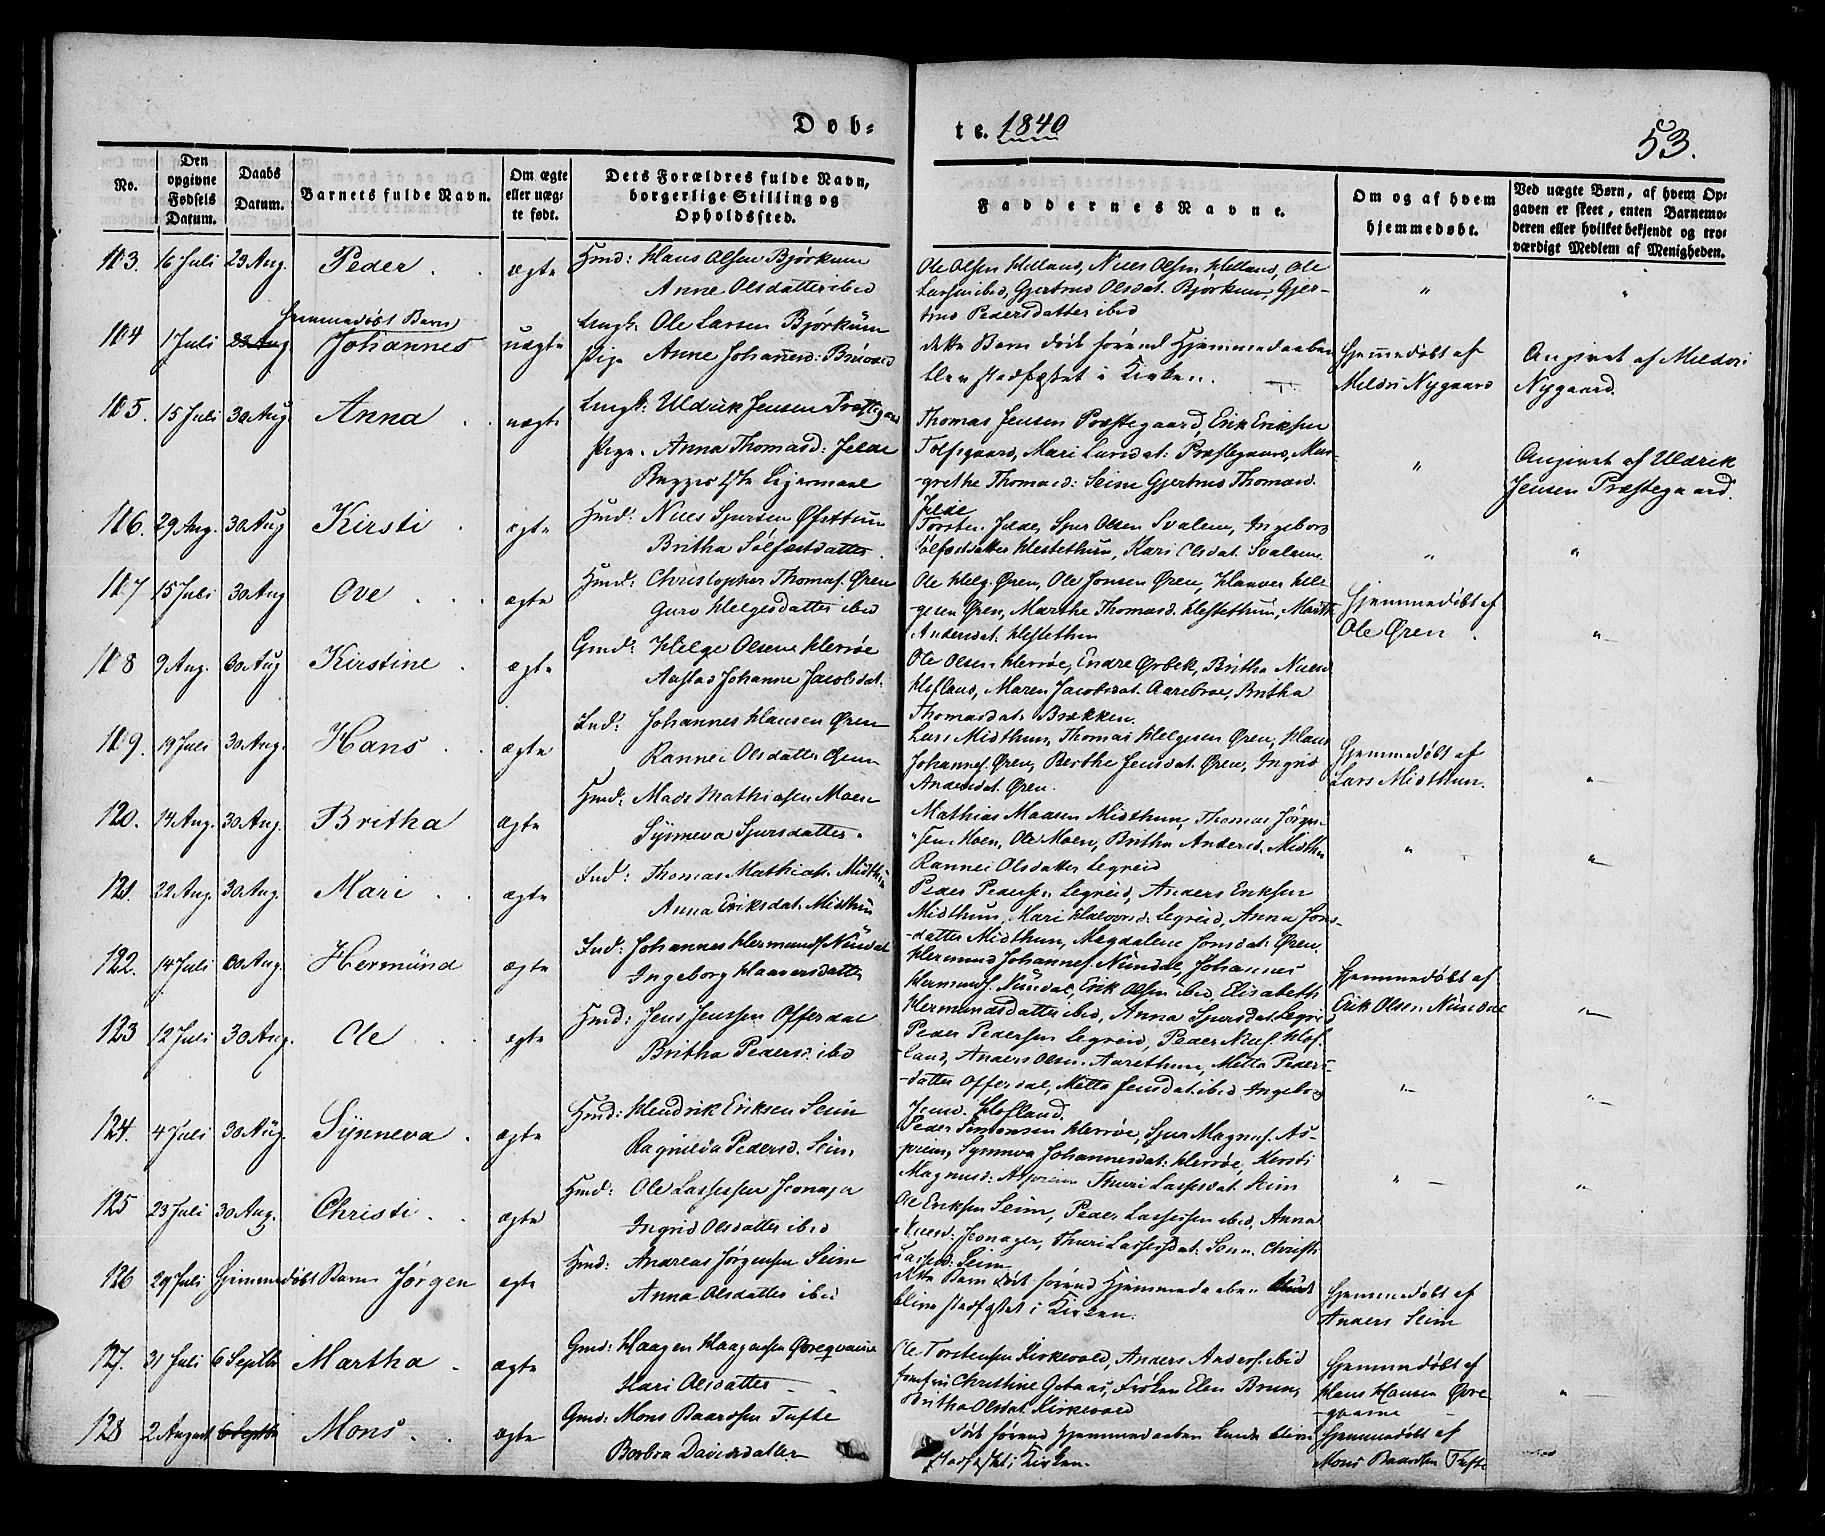 Døb-
te. 1840
53.
No.
Den opgivne Fødsels Datum.
Daabs Datum.
Barnets fulde Navn.
Om ægte eller uægte født.
Dets Forældres fulde Navn, borgerlige Stilling og Opholdssted.
Faddernes Navne.
Om og af hvem hjemmedøbt.
Ved uægte Børn, af hvem Opgaven er skeet, enten Barnemoderen eller hvilket bekjendt og troværdigt Medlem af Menigheden.
113. 16 Juli 23 Aug. Peder ægte Hmd: Hans Olsen Bjørkum
Anne Olsdatter ibid
Ole Olsen Helland, Niels Olsen Helland, Ole
Larsen ibid, Gjertrud Olsdat. Bjørkum, Gjer-
trud Pedersdatter ibid
114 1 Juli 23 Aug. Hjemmedøbt Barn
Johannes uægte Ungk: Ole Larsen Bjørkum
Pige Anne Johannesd:
dette Barn døde førend Hjemmedaaben
blev stadfæstet i Kirken.
Hjemmedøbt af
Mildri Nygaard
Angivet af Mildri
Nygaard.
115. 15 Juli 30 Aug. Anna uægte Ungk: Uldrik Jensen Præstegaard
Pige. Anna Thomasd: Jelde
Begges 1ste Leiermaal
Thomas Jensen Præstegaard, Erik Eriksen
Mari Larsdat: Præstegaard, Mar-
grethe Thomasd: Seim Gjertrud Thomasd.
Jelde
Angivet af Uldrik
Jensen Præstegaard.
116. 29 Aug. 30 Aug Kirsti ægte Hmd: Niels Sjursen Øfsttun
Britha Sølfestdatter.
Torsten Jelde, Sjur Olsen Svalem, Ingeborg
Sølfestdatter Hestethun, Kari Olsdat. Svalem.
117 15 Juli 30 Aug Ove ægte Hmd: Christopher Thomas. Øren
Guro Helgesdatter ibid
Ole Helg. Øren, Ole Jonsen Øren, Haaver Hel-
gesen Øren, Marthe Thomasd. Hestethun, Marth
Andersdat. Hestethun
Hjemmedøbt af
Ole Øren.
118 9 Aug. 30 Aug Kirstine ægte Gmd: Helge Olsen Herrøe
Aastad Johanne Jacobsdat.
Ole Olsen Herrøe, Endre Ørbek, Britha Nielsd
Hofland, Maren Jacobsdat. Aarebroe, Britha
Thomasdat. Brækken.
119. 19 Juli 30 Aug. Hans ægte Ind: Johannes Hansen Øren
Rannei Olsdatter Øren
Lars Midthun, Thomas Helgesen Øren, Hans
Johannes. Øren, Berthe Jensdat. Øren, Ingrid
Andersdat. Øren.
Hjemmedøbt af
Lars Midthun.
120. 14 Aug. 30 Aug. Britha ægte Hmd: Mads Mathiasen Moen
Synneva Sjursdatter
Mathias Madsen Midthun, Thomas Jørgen-
sen Moen, Ole Moen, Britha Andersd. Midthun
Rannei Olsdatter Legreid
121. 22 Aug. 30 Aug. Mari ægte Ind: Thomas Mathias. Midthun
Anna Eriksdat. Midthun
Peder Pedersen Legreid, Anders Eriksen
Midthun, Mari Halvorsd. Legreid, Anna Jons-
datter Midthun, Magdalene Jonsdat. Øren.
122. 14 Juli 30 Aug. Hermund ægte Ind: Johannes Hermunds. Nundal
Ingeborg Haaversdatter
Hermund Johannes. Nundal, Johannes
Hermunds. Nundal, Erik Olsen ibid, Elisabeth
Hermundsdatter ibid, Anna Sjursdat. Legreid
Hjemmedøbt af
Erik Olsen Nundal
123 12 Juli 30 Aug. Ole ægte Hmd: Jens Jenssen Offerdal
Britha Pedersd. ibid
Peder Pedersen Legreid, Peder Niels. Hof-
land, Anders Olsen Aarethun, Metta Peders-
datter Offerdal, Mette Jensdat. ibid Ingeborg
Jensd. Hofland.
124. 4 Juli 30 Aug. Synneva ægte Hmd: Hendrik Eriksen Seim
Ragnilda Pedersd. Seim
Peder Simonsen Herrøe, Sjur Magnus. As-
preim, Synneva Johannesdat: Herrøe, Kersti
Magnusd: Aspreim Thuri Lassesdat. Seim
125 23 Juli 30 Aug. Christi ægte Hmd: Ole Lassessen
Ingrid Olsdatter ibid
Ole Eriksen Seim, Peder Lassessen ibid, Anna
Nielsd: Thuri Lassesdat. Seim. Christi
Lassesd: Seim
126 29 Juli Hjemmedøbt Barn Jørgen ægte Hmd: Andreas Jørgensen Seim
Anna Olsdatter ibid
dette Barn døde førend Hjemmedaaben kunde
blive stadfæstet i Kirken.
Hjemmedøbt af
Anders Seim
127. 31 Juli 6 Septbr Martha ægte Gmd: Haagen Haagensen Øvreqvamme
Kari Olsdatter
Ole Torstensen Kirkevold, Anders Anders. ibid
Jomfru Christine Frøken Elen Brun,
Britha Olsdat. Kirkevold
Hjemmedøbt af
Hans Hansen Øvre-
qvamme
128 2 August 6 Septbr Mons. ægte Gmd: Mons Baardsen Tufte
Borbra Davidsdatter
død førend Hjemmedaaben kunde blive
stadfæstet i Kirken.
Hjemmedøbt af
Mons Baardsen Tufte